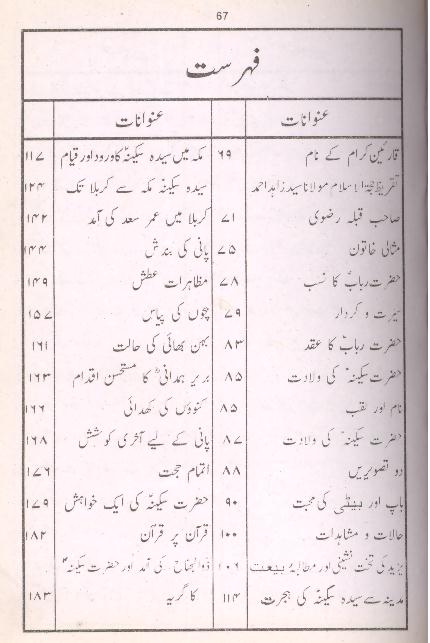 67
فہرست
عنوانات
عنوانات
قارئین کرام کے نام ۶۹
تقریظ حجۃ الاسلام مولانا سید زاہد احمد
صاحب قبلہ رضوی ۷۱
مثالی خاتون ۷۵
حضرت ربابؑ کا نسب ۷۸
سیرت و کردار ۷۹
حضرت ربابؑ کا عقد ۸۳
حضرت سکینہؑ کی ولادت ۸۵
نام اور لقب ۸۵
حضرت سکینہؑ کی ولادت ۸۷
دو تصویریں ۸۸
باپ اور بیٹی کی محبت ۹۰
حالات و مشاہدات ۱۰۰
یزید کی تخت نشینی اور مطالبۂ بیعت ۱۰۶
مدینہ سے سیدہ سکینہؑ کی ہجرت ۱۱۴
مکہ میں سیدہ سکینہؑ کا ورود اور قیام ۱۱۷
سیدہ سکینہؑ مکہ سے کربلا تک ۱۲۴
کربلا میں عمر سعد کی آمد ۱۴۲
پانی کی بندش ۱۴۴
مظاہرات عطش ۱۴۹
بچوں کی پیاس ۱۵۷
بہن بھائی کی حالت ۱۶۱
بریر ہمدانیؓ کا مستحسن اقدام ۱۶۳
کنوؤں کی کھدائی ۱۶۶
پانی کے لیے آخری کوشش ۱۶۸
اتمام حجت ۱۷۶
حضرت سکینہؑ کی ایک خواہش ۱۷۹
قرآن پر قرآن ۱۸۲
ذوالجناح کی آمد اور حضرت سکینہؑ
کا گریہ ۱۸۳